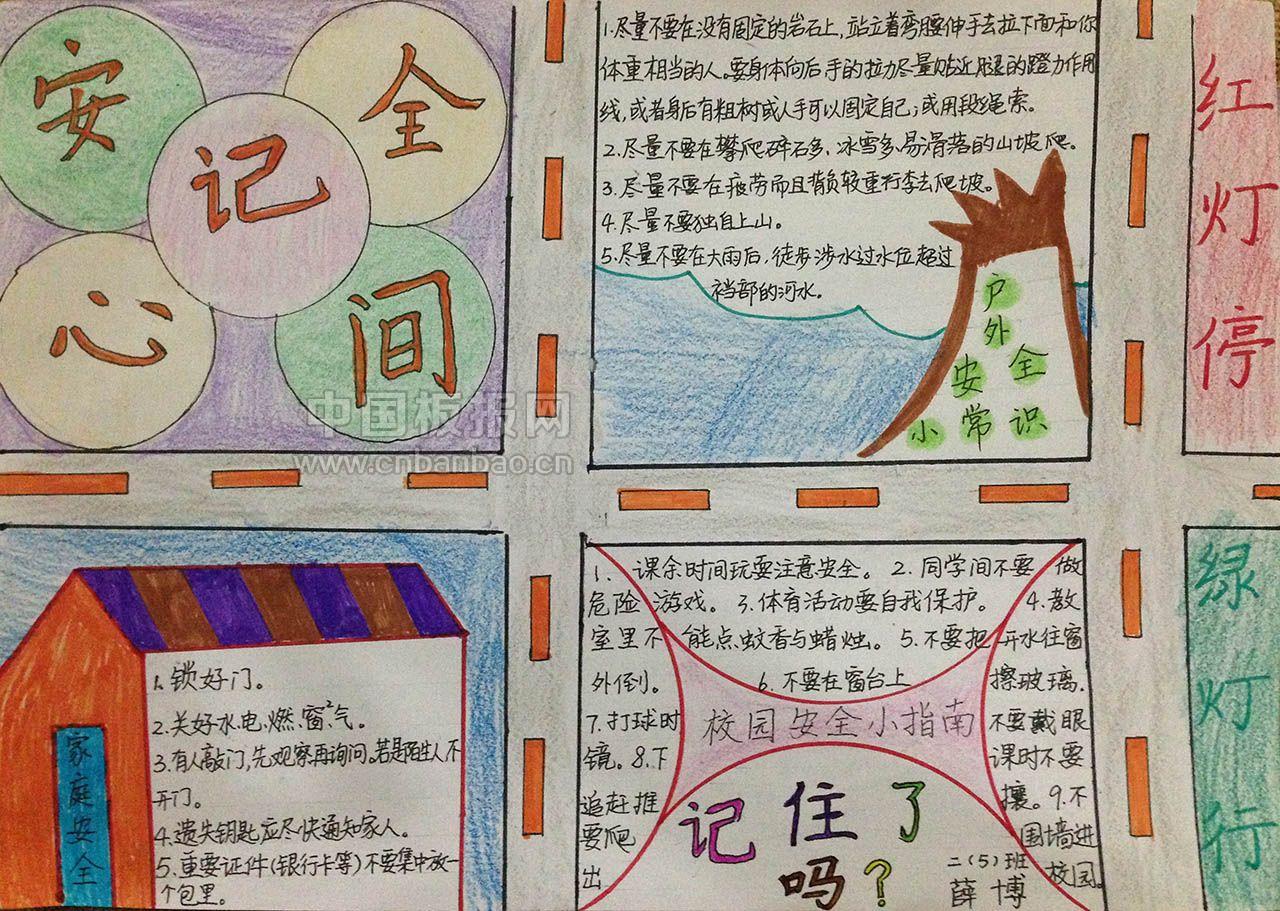 安
全
记
心
间
1.尽量不要在没有固定的岩石上,站立着弯腰伸手去拉下面和你
体重相当的人。要身体向后手的拉力尽量贴近腿的蹬力作用
线,或者身后有粗树或人手可以固定自己;或用段绳索。
2.尽量不要在攀爬碎石多、冰雪多、易滑落的山坡爬。
3.尽量不要在疲劳而且背负较重行李去爬坡。
4.尽量不要独自上山。
5.尽量不要在大雨后,徒步涉水过水位超过
裆部的河水。
户
外
安全
小常识
红
灯
停
中国板报网
www.cnbanbao.cn
1.锁好门。
2.关好水、电、燃、窗²气。
3.有人敲门,先观察再询问。若是陌生人不
开门。
4.遗失钥匙应尽快通知家人。
5.重要证件(银行卡等)不要集中放一
个包里。
家
庭
安
全
1. 课余时间玩耍注意安全。2.同学间不要做
危险游戏。3.体育活动要自我保护。4.教
室里不能点蚊香与蜡烛。5.不要把开水往窗
外倒。6.不要在窗台上擦玻璃.
7.打球时不要戴眼
镜。8.下课时不要
追赶推攘。9.不
要爬围墙进
出校园。
校园安全小指南
记住了
吗?
二(5)班
薛博
绿
灯
行